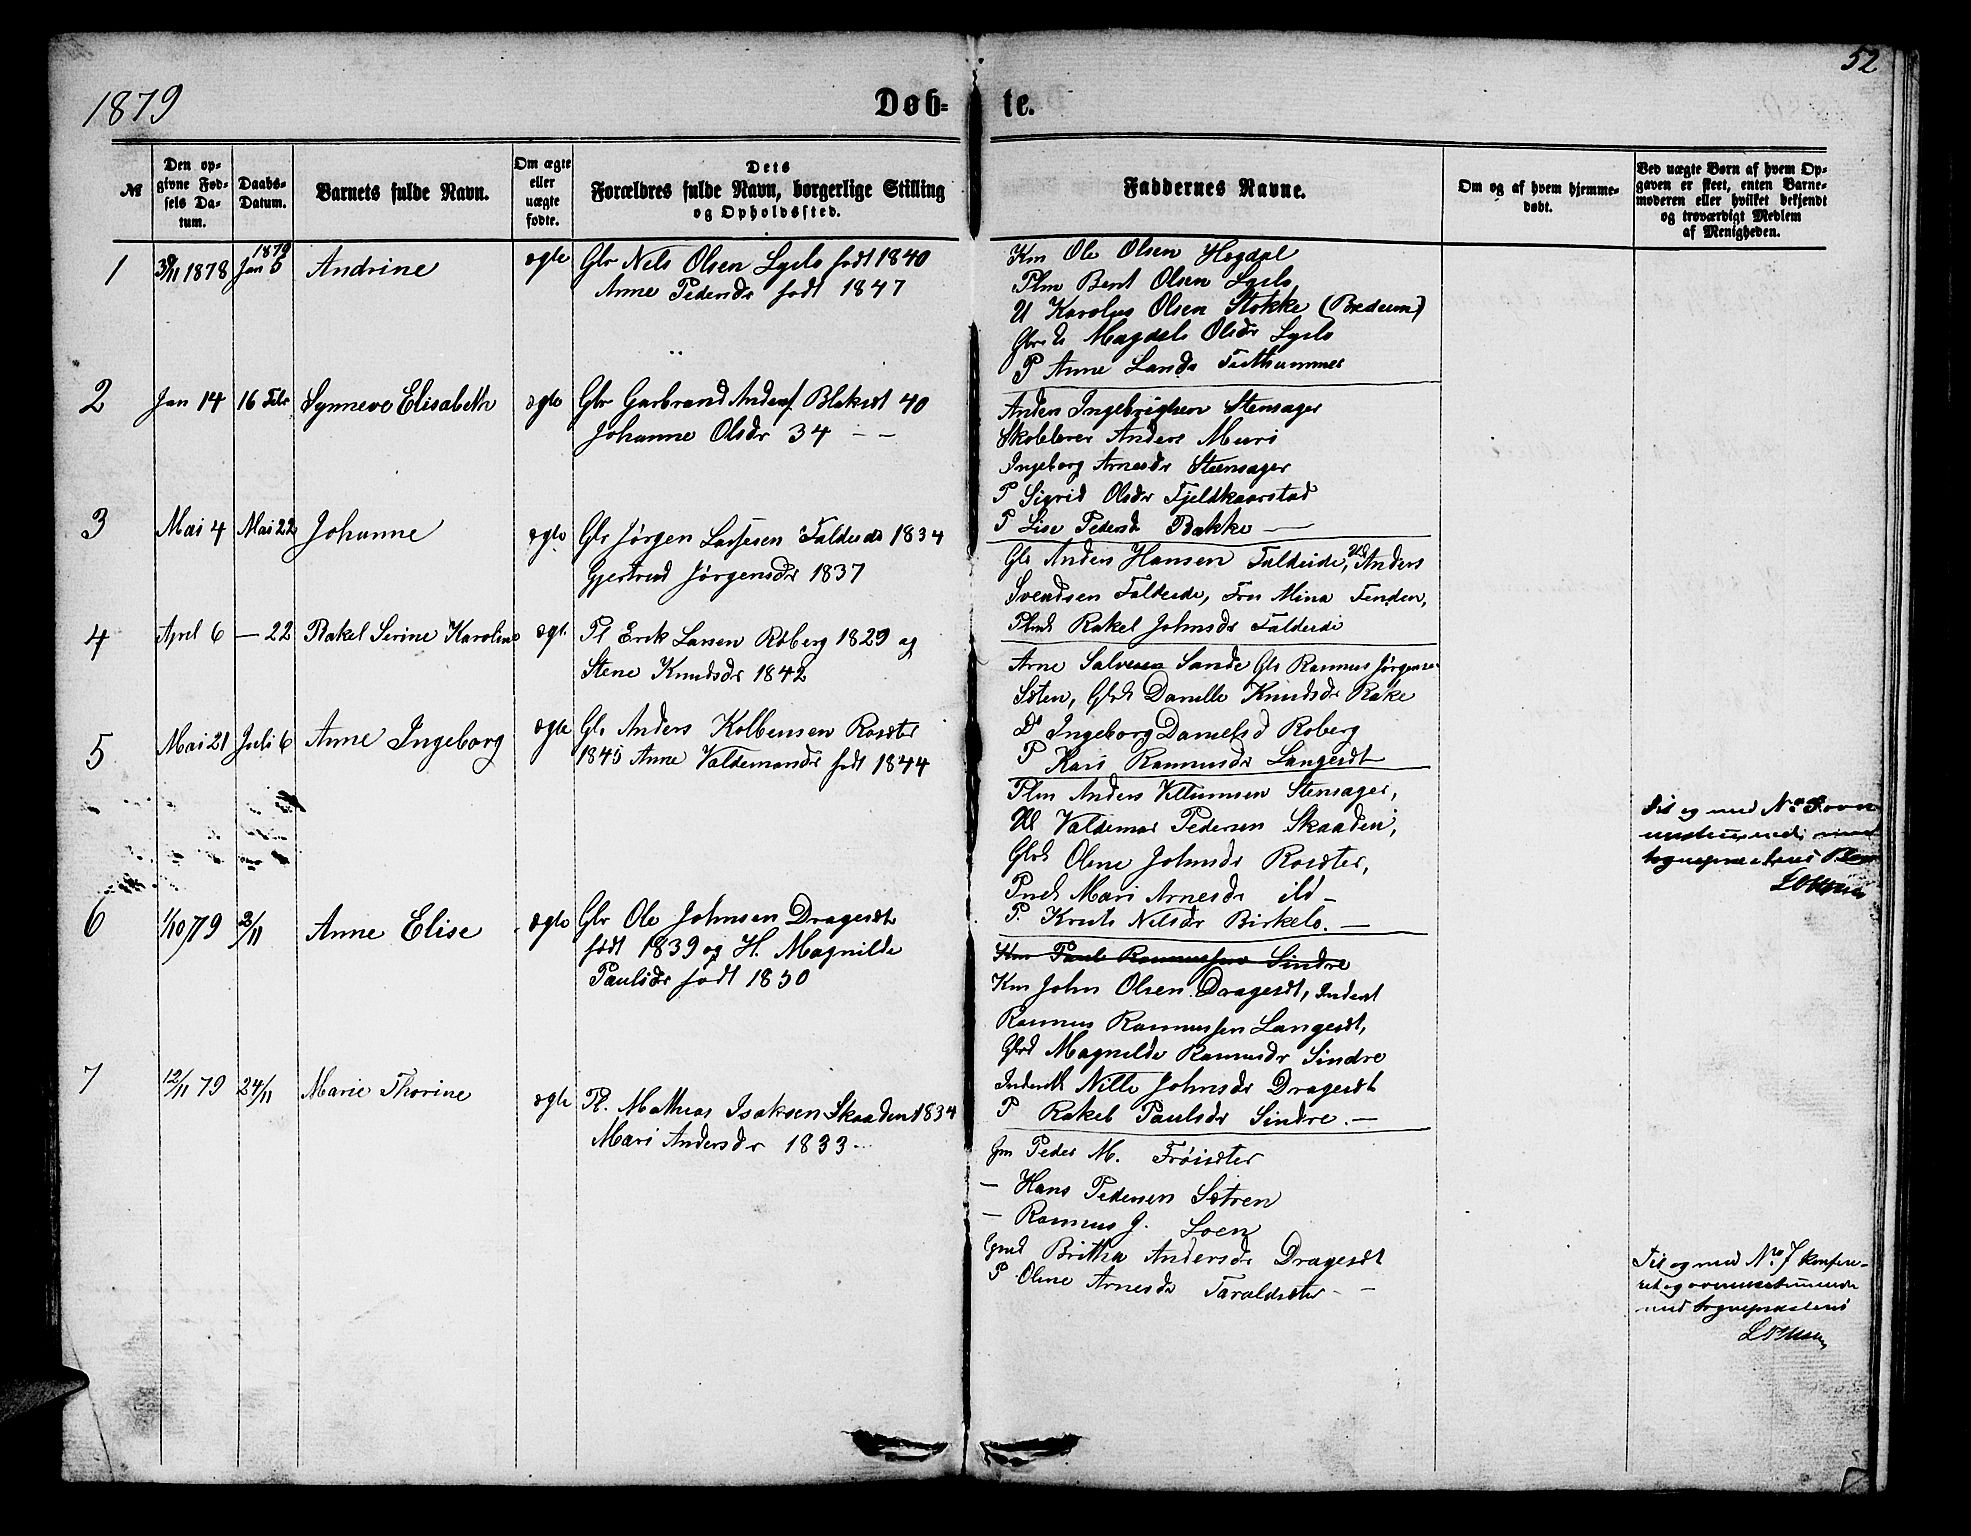 52
1879
Døb-
te.
№
Den op-
givne Fød-
sels Da-
tum.
Daabs-
Datum.
Barnets fulde Navn.
Om ægte
eller
uægte
fødte.
Dets
Forældres fulde Navn, borgerlige Stilling
og Opholdssted.
Faddernes Navne.
Om og af hvem hjemme-
døbt.
Ved uægte Børn af hvem Op-
gaven er skeet, enten Barne-
moderen eller hvilket bekjendt
og troværdigt Medlem
af Menigheden.
1
1878
1879
Jan 5
Andrine
ægte
Gbr Nils Olsen Lyslo født 1840
Anne Pedersdr født 1847
Km Ole Olsen Hegdal
Plm Bent Olsen Lyslo
U Karolus Olsen Stokke (Bredeim)
Magdele Olsdr Lyslo
P Anne Lands
2
Jan 14
16 Febr
Synneve Elisabeth
ægte
Gbr Garbrand Anders. Blakset 40
Johanne Olsdr 34 - -
Anders Ingebrigtsen Stensager
Skolelærer Anders Muri
Ingeborg Arnesdr Stensager
P Sigrid Olsdr Fjeldkaarstad
P Lise Pedersd Bakke —
3
Mai 4
Mai 22
Johanne
ægte
Gbr Jørgen Larsen Faldeide 1834
Gjertrud Jørgensdr 1837
Gbr Anders Hansen Faldeide, Anders
Svendsen Faldeide, Fru Mina Tenden,
Rakel Johnsdr Faldeide
4
April 6
— 22
Rakel Serine Karoline
ægte
Pl Erik Larsen Roberg 1829 og
Stene Knudsdr 1842
Arne Salvesen Sande Gbr Rasmus Jørgens-
Sæten, Danielle Knudsdr Rake
Ds Ingeborg Danielsd Roberg
P Kari Rasmusdr Langesæt
5
Mai 21
Juli 6
Anne Ingeborg
ægte
Gbr Anders Kolbensen Rosæter
1845 Anne Valdemarsdr født 1844
Plm Anders Stensager,
Valdemar Pedersen Skaaden,
Oline Johnsdr Rosæter,
Mari Arnesdr ild -
P. Nilsdr Birkelo. —
Til og med No
6
1/10 79
2/11
Anne Elise
ægte
Gbr Ole Johnsen Dragesæt
født 1839 og H. Magnilde
Paulsdr født 1850
Paul Rasmussen Sindre
Km John Olsen Dragesæt, Inderst
Rasmus Rasmussen Langesæt,
Magnilde Rasmusdr Sindre
Nille Johnsdr Dragesæt
P Rakel Paulsdr Sindre. —
7
12/11 79
24/11
Marie Thorine
ægte
Pl. Mathias Isaksen Skaaden 1834
Mari Andersdr 1833 -
Gm Peder M. Frøisæter
— Hans Pedersen Sætren
— Rasmus J. Loen
Gmd Britha Andersdr Dragesæt
P Oline Arnesdr Taraldsæter - -
Til og med No 7 konfere-
ret og overensstemmende
med Sognepræstens